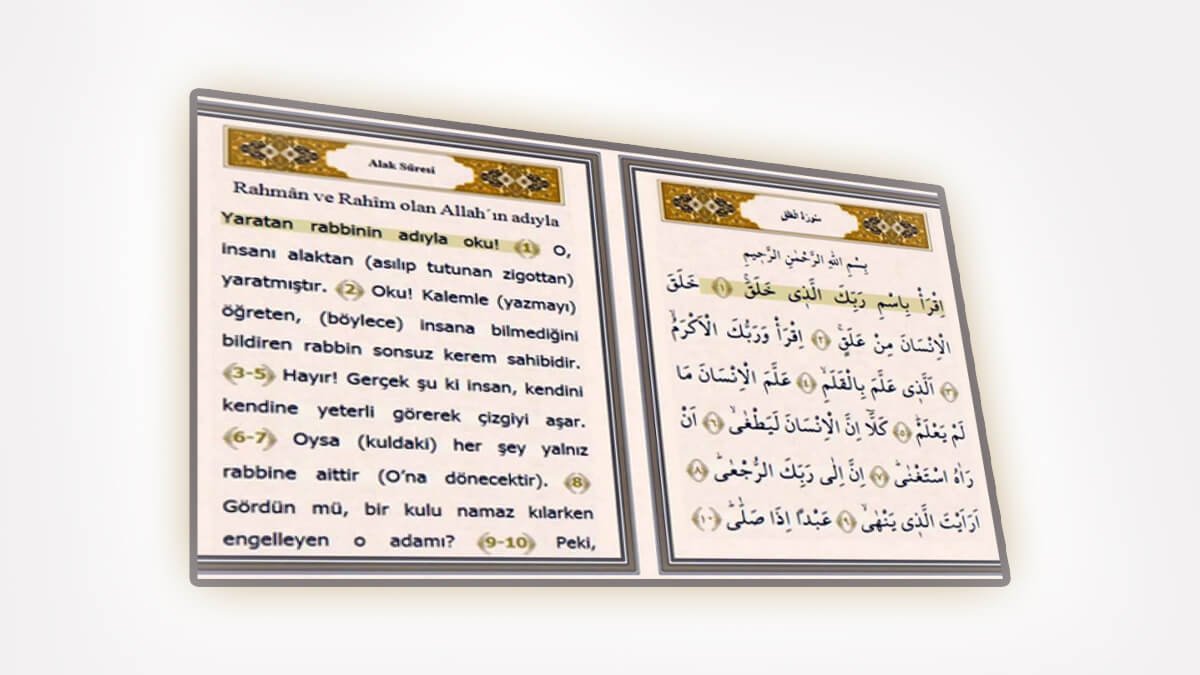 Alak Sûresi
Rahmân ve Rahîm olan Allah´ın adıyla
Yaratan rabbinin adıyla oku! ﴾1﴿ O,
insanı alaktan (asılıp tutunan zigottan)
yaratmıştır. ﴾2﴿ Oku! Kalemle (yazmayı)
öğreten, (böylece) insana bilmediğini
bildiren rabbin sonsuz kerem sahibidir.
﴾3-5﴿ Hayır! Gerçek şu ki insan, kendini
kendine yeterli görerek çizgiyi aşar.
﴾6-7﴿ Oysa (kuldaki) her şey yalnız
rabbine aittir (O’na dönecektir). ﴾8﴿
Gördün mü, bir kulu namaz kılarken
engelleyen o adamı? ﴾9-10﴿ Peki,
سُورَةُ الْعَلَقِ
بِسْمِ اللّٰهِ الرَّحْمٰنِ الرَّح۪يمِ
اِقْرَأْ بِاسْمِ رَبِّكَ الَّذ۪ي خَلَقَۚ ﴿١﴾ خَلَقَ
الْاِنْسَانَ مِنْ عَلَقٍۚ ﴿٢﴾ اِقْرَأْ وَرَبُّكَ الْاَكْرَمُۙ
﴿٣﴾ اَلَّذ۪ي عَلَّمَ بِالْقَلَمِۙ ﴿٤﴾ عَلَّمَ الْاِنْسَانَ مَا
لَمْ يَعْلَمْۜ ﴿٥﴾ كَلَّٓا اِنَّ الْاِنْسَانَ لَيَطْغٰىۙ ﴿٦﴾ اَنْ
رَاٰهُ اسْتَغْنٰىۜ ﴿٧﴾ اِنَّ اِلٰى رَبِّكَ الرُّجْعٰىۜ ﴿٨﴾
اَرَاَيْتَ الَّذ۪ي يَنْهٰىۙ ﴿٩﴾ عَبْدًا اِذَا صَلّٰىۜ ﴿١٠﴾